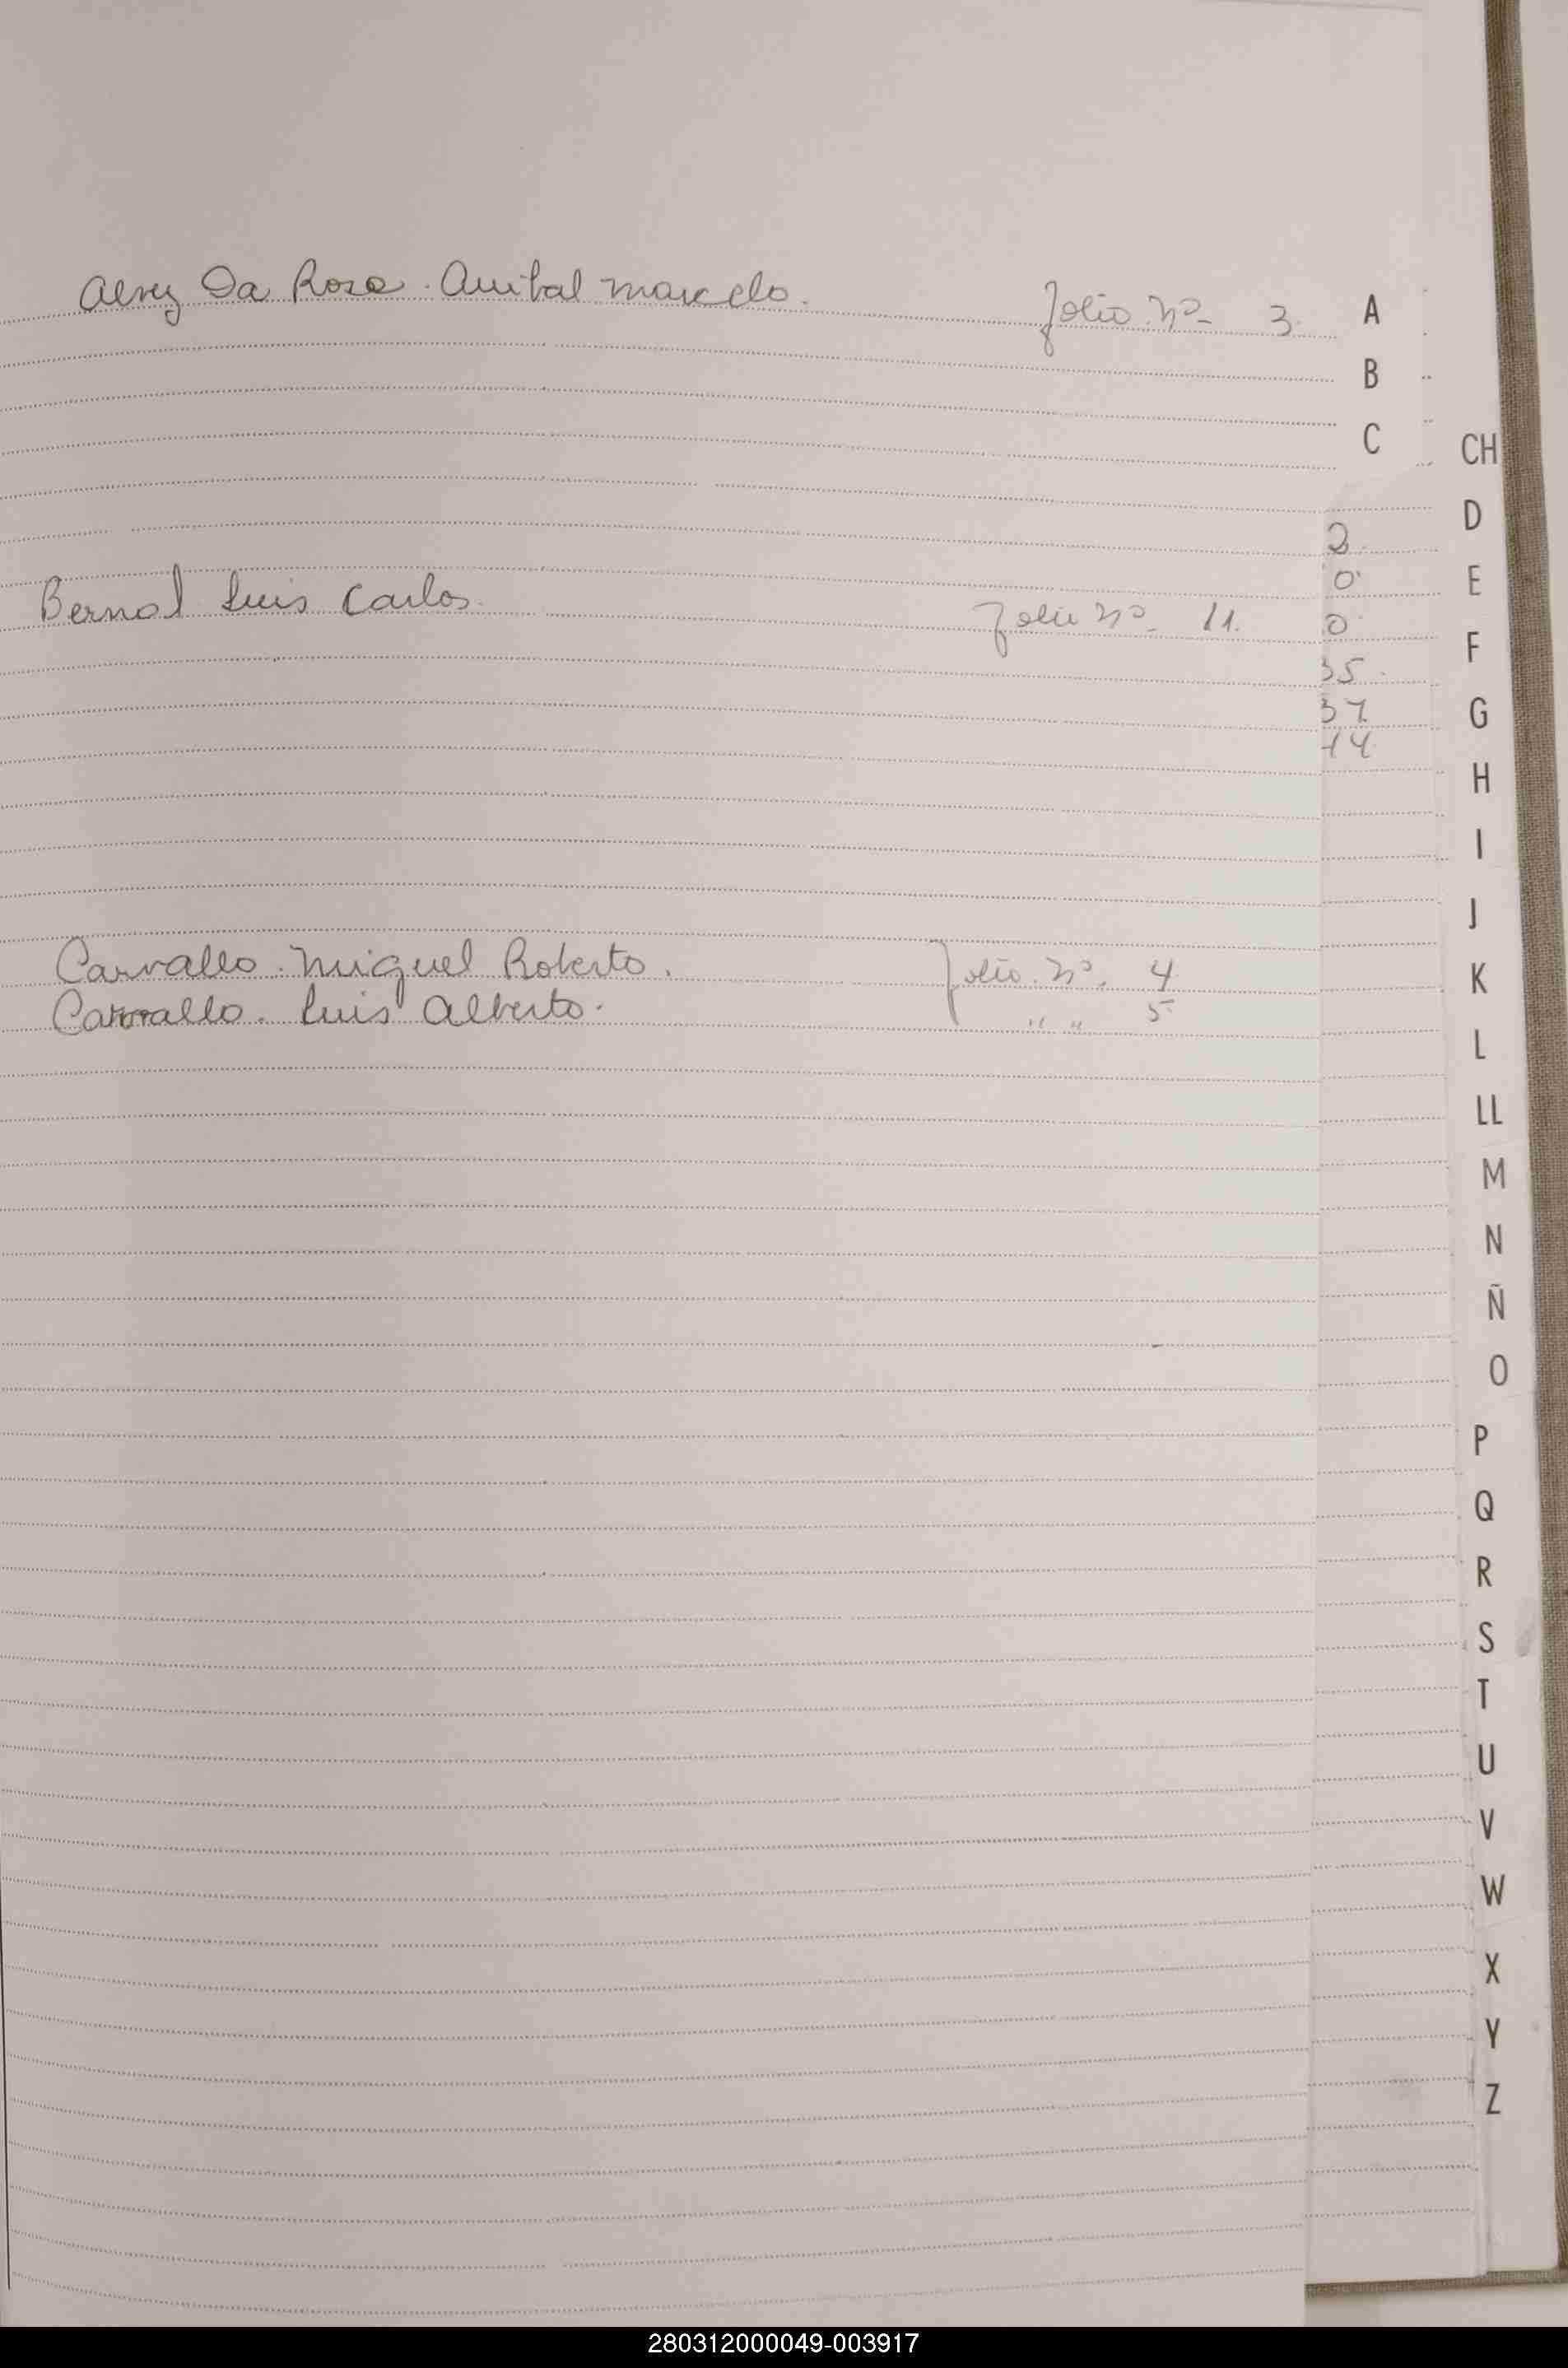 Alvez Da Rosa. Anibal Marcelo. Folio Nº 3. A
B
C
CH
D
2
E
0
Bernal Luis Carlos. Folio Nº 11. 0
F
35
37 G
14
H
I
J
Carvallo. Miguel Roberto. Folio. Nº. 4 K
Carvallo. Luis Alberto. " " 5
L
LL
M
N
Ñ
O
P
Q
R
S
T
U
V
W
X
Y
Z
280312000049-003917